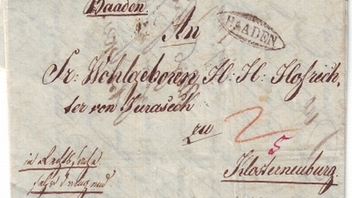 Baaden
BAADEN
An
Sr: Wohlgeboren, H: H: Hofrich,
ter von Jurasech
zu
2
5
Klosterneuburg
in